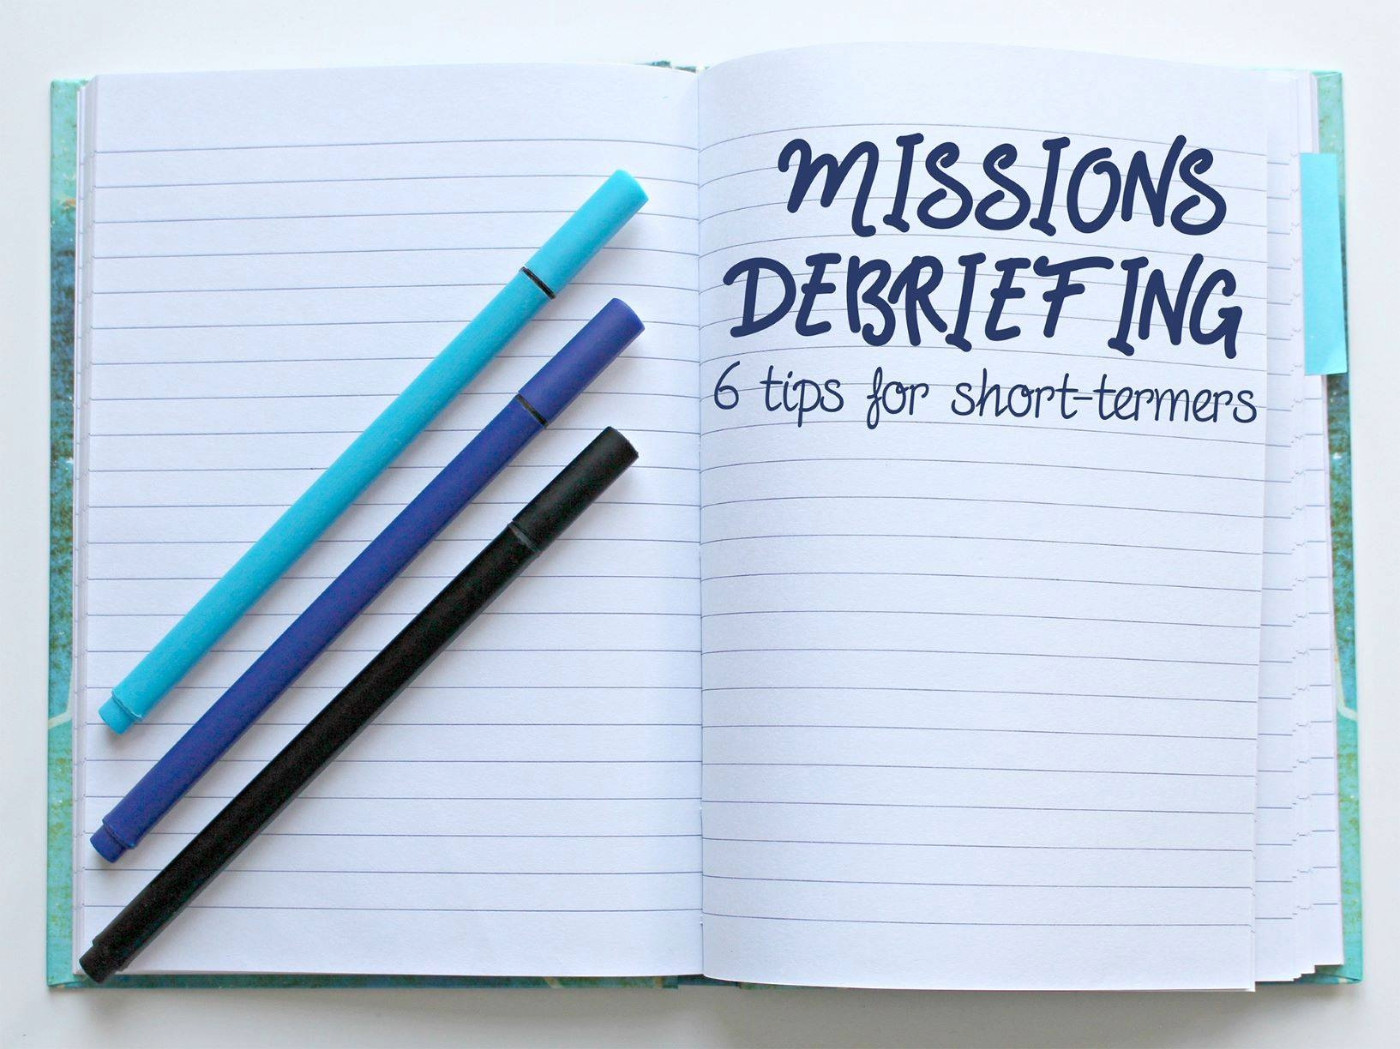 MISSIONS
DEBRIEFING
6 tips for short-termers